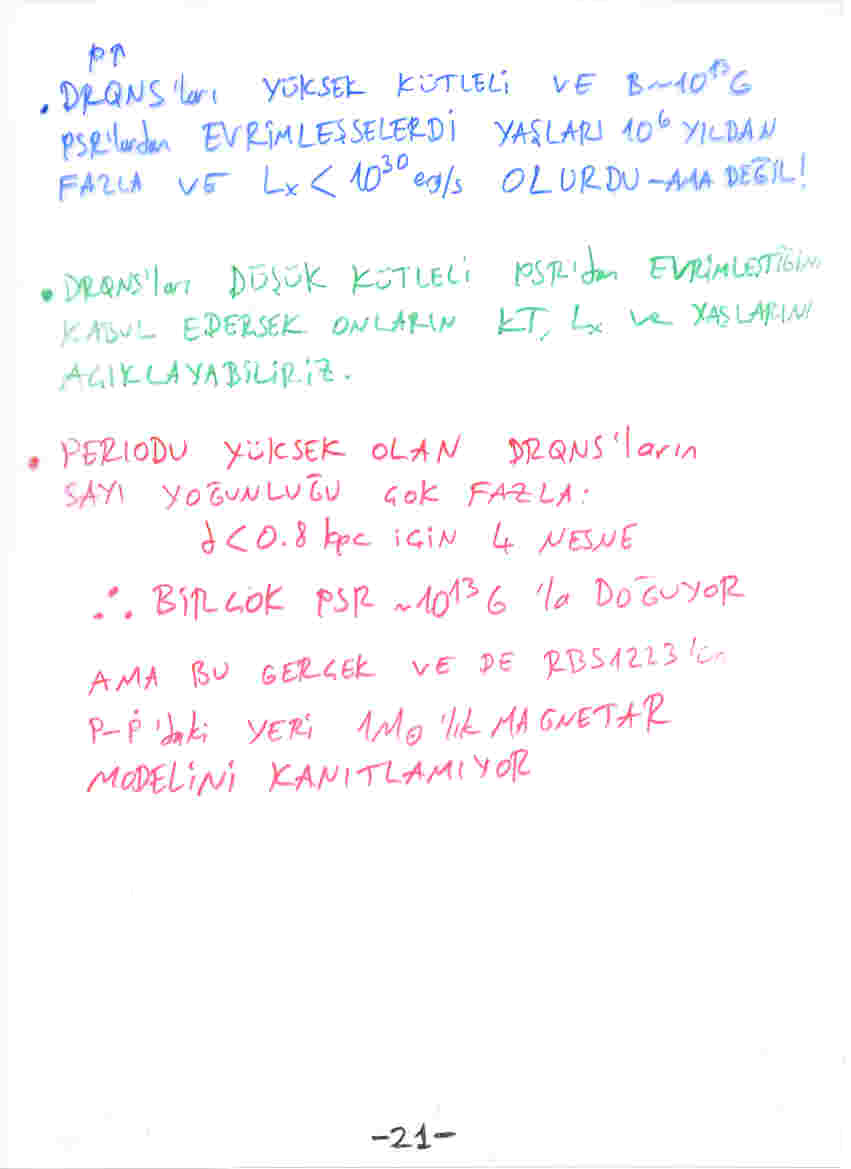 P↑
• DRQNS'ları YÜKSEK KÜTLELİ VE B~10¹³G
PSR'lardan EVRİMLEŞSELERDİ YAŞLARI 10⁶ YILDAN
FAZLA VE Lx < 10³⁰ erg/s OLURDU – AMA DEĞİL!
• DRQNS'ları DÜŞÜK KÜTLELİ PSR'dan EVRİMLEŞTİĞİNİ
KABUL EDERSEK ONLARIN kT, Lx ve YAŞLARINI
AÇIKLAYABİLİRİZ.
• PERIODU YÜKSEK OLAN DRQNS'ların
SAYI YOĞUNLUĞU ÇOK FAZLA:
d<0.8 kpc İÇİN 4 NESNE
∴ BİRÇOK PSR ~10¹³G 'la DOĞUYOR
AMA BU GERÇEK VE DE RBS1223'ün
P-Ṗ'daki YERİ 1M⊙'lık MAGNETAR
MODELİNİ KANITLAMIYOR
-21-